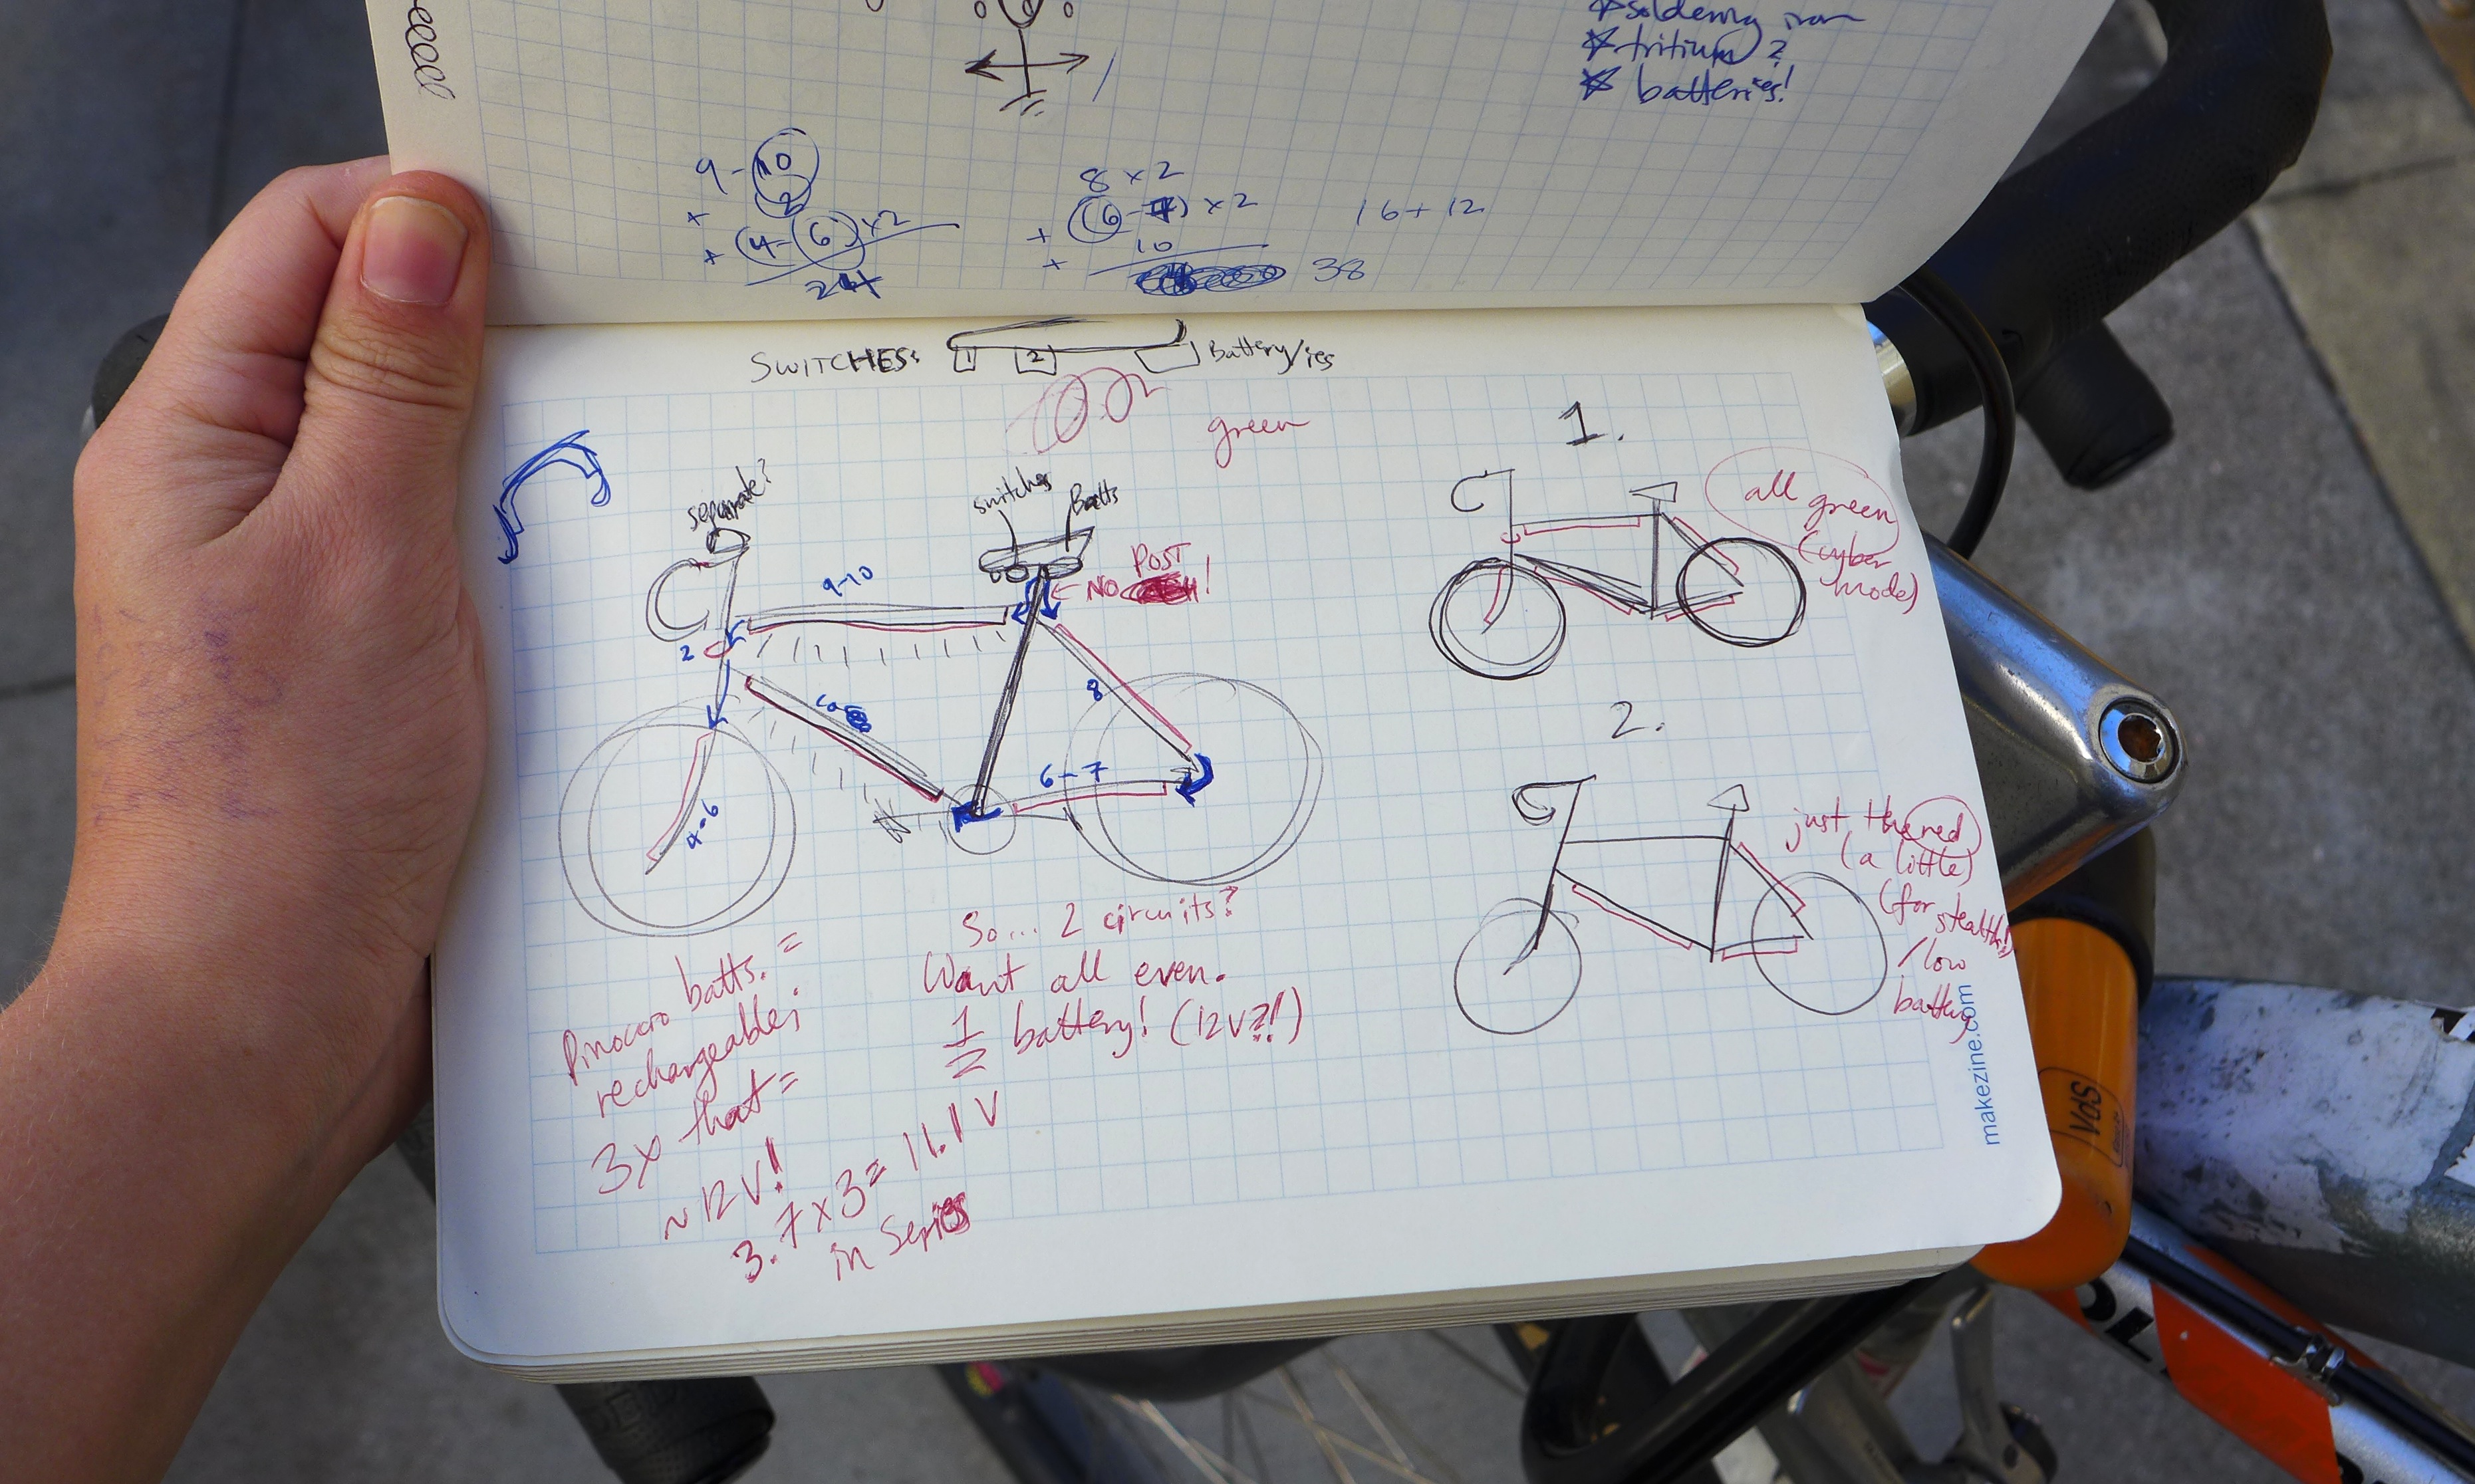 * soldering iron
* tritium?
* batteries!
9-10
+ 2
+ (4-6) x2
24
8 x 2
+ (6-7) x 2
+ 10
38
16 + 12
SWITCHES:
1
2
Battery/ies
green
separate?
switches
Batts
NO POST!
9-10
2
8
6-7
4-6
1.
all green
(cyber
mode)
2.
just the red
(a little)
(for stealth!)
/low
battery
So... 2 circuits?
Want all even.
1 battery! (12V?!)
Pinoccio batts. =
rechargeable;
3x that =
~12V!
3.7x3= 11.1V
in Series
makezine.com
SPA